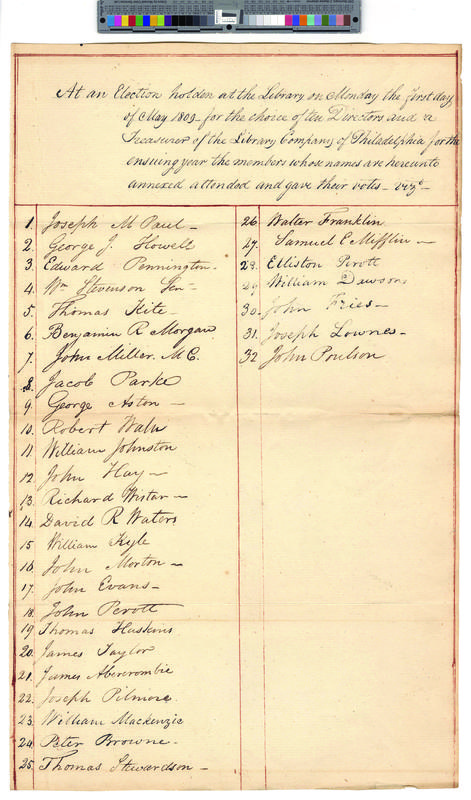 At an Election holden at the Library on Monday the first day
of May 1809 for the choice of ten Directors and a
Treasurer of the Library Company of Philadelphia for the
ensuing year the members whose names are hereunto
annexed attended and gave their votes - vizt -
1. Joseph M Paul -
2. George J. Howell
3. Edward Pennington.
4. Wm Stevenson Sen -
5. Thomas Kite -
6. Benjamin R Morgan
7. John Miller. M C.
8. Jacob Parke
9. George Aston -
10. Robert Waln
11. William Johnston
12. John Hay -
13. Richard Wistar -
14. David R Waters
15. William Kyle
16. John Morton -
17. John Evans -
18. John Perott
19. Thomas Haskins
20. James Taylor
21. James Abercrombie
22. Joseph Pilmore.
23. William Mackenzie
24. Peter Browne.
25. Thomas Stewardson -
26. Walter Franklin
27. Samuel E Mifflin -
28. Elliston Perott
29. William Dawson
30. John Fries -
31. Joseph Lownes -
32 John Poulson